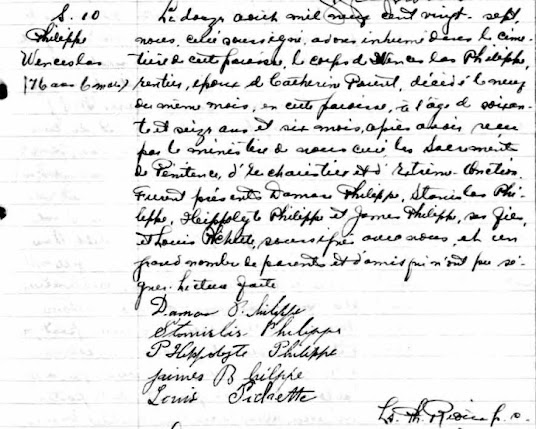 S. 10
Philippe
Wenceslas
(76 ans 6 mois)
Le douze août mil neuf cent vingt-sept,
nous, curé soussigné, avons inhumé dans le cime-
tière de cette paroisse, le corps de Wenceslas Philippe,
rentier, époux de Catherine Parent, décédé le neuf
du même mois, en cette paroisse, à l'âge de soixan-
te et seize ans et six mois, après avoir reçu
par le ministère de nous curé les Sacrements
de Pénitence, d'Eucharistie et d'Extrême-Onction.
Furent présents Damas Philippe, Stanislas Phi-
lippe, Hippolyte Philippe et James Philippe, ses fils,
et Louis soussignés avec nous, et un
grand nombre de parents et d'amis qui n'ont pu si-
gner. Lecture faite
Damas Philippe
Stanislis Philippe
P Hippolyte Philippe
James Philppe
Louis
Ls. Th. ptre. c.